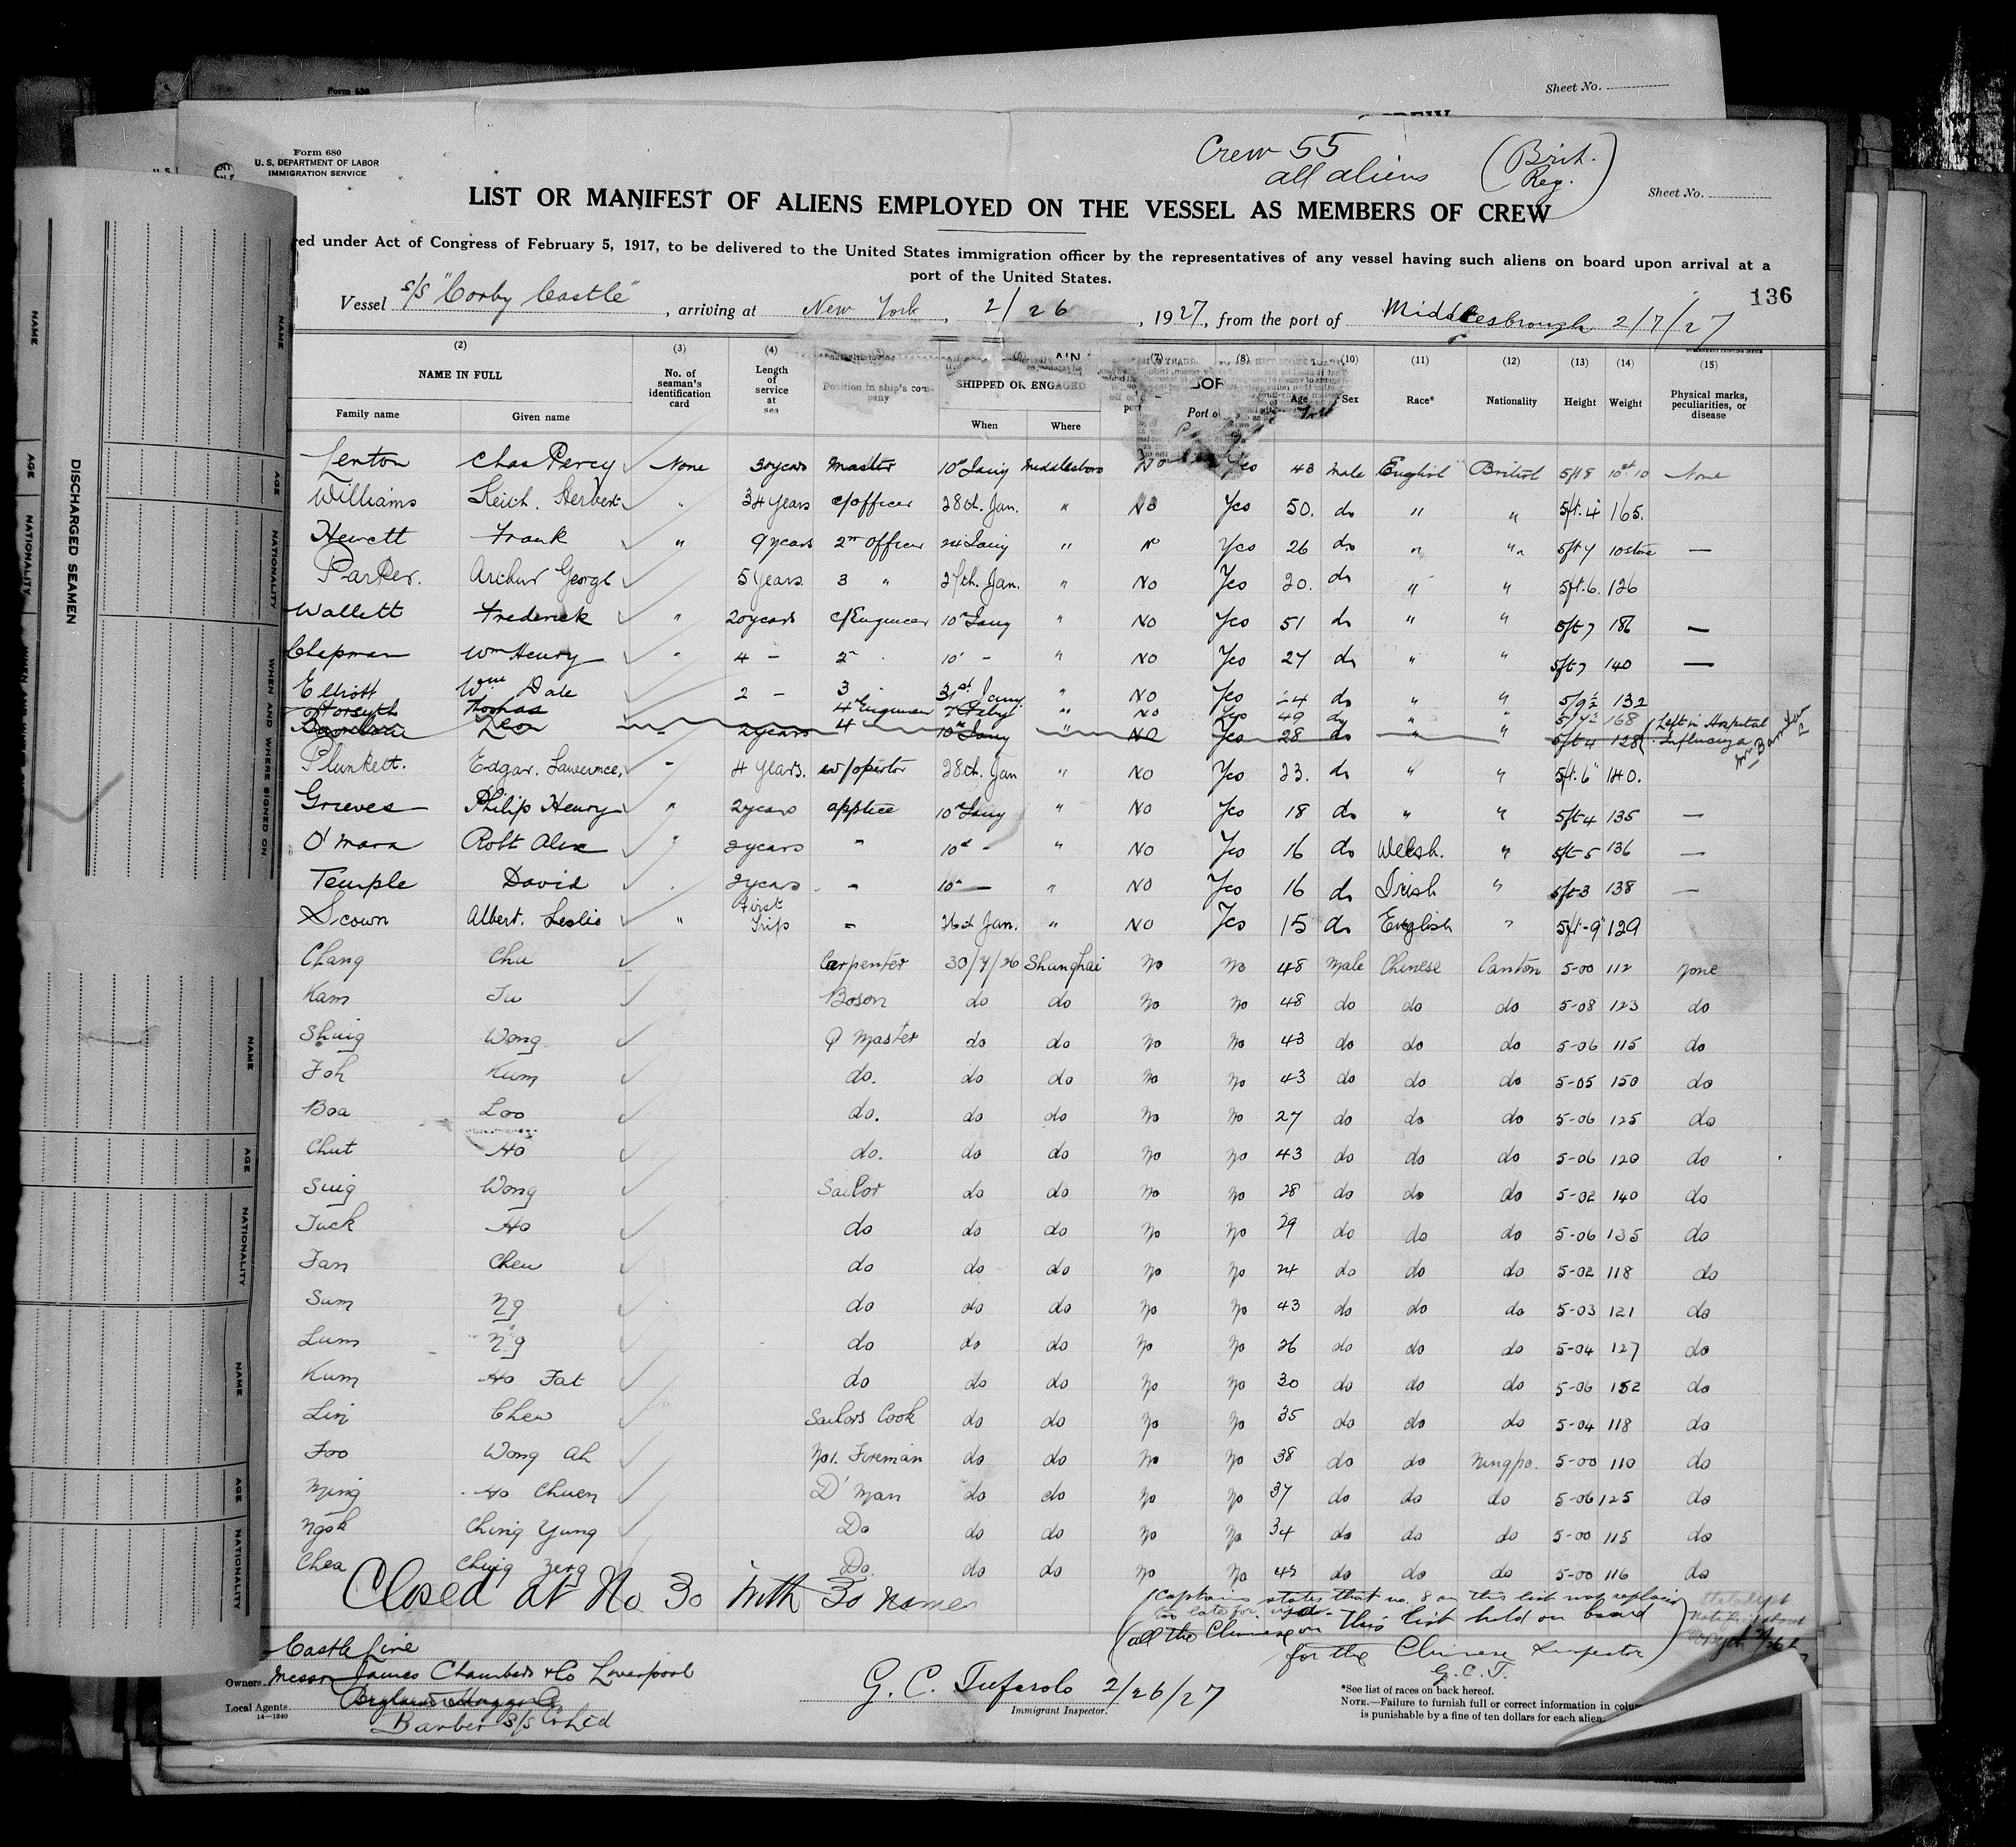 Form 680
Sheet No.
Form 680
U. S. DEPARTMENT OF LABOR
IMMIGRATION SERVICE
Crew 55
all aliens
(Brit. Reg.)
Sheet No.
LIST OR MANIFEST OF ALIENS EMPLOYED ON THE VESSEL AS MEMBERS OF CREW
red under Act of Congress of February 5, 1917, to be delivered to the United States immigration officer by the representatives of any vessel having such aliens on board upon arrival at a
port of the United States.
136
Vessel s/s "Corby Castle", arriving at New York, 2/26, 1927, from the port of Middlesbrough 2/7/27
(2) (3) (4) (5) (6) (7) (8) (10) (11) (12) (13) (14) (15)
NAME IN FULL No. of seaman's identification card Length of service at sea Position in ship's company SHIPPED OR ENGAGED Age Sex Race* Nationality Height Weight Physical marks, peculiarities, or disease
Family name Given name When Where
Lenton Chas Percy None 30 years Master 10th Jany Middlesboro No Yes 43 Male English British 5ft 8 10st 10 None
Williams Keith. Herbert " 34 years c/officer 28th. Jan. " No Yes 50. do " " 5ft. 4 165.
Hewett Frank " 9 years 2nd officer 24 Jany " No Yes 26 do " " 5ft 7 10 stone —
Parker. Arthur George 5 years 3 " 27th. Jan. " No Yes 20. do " " 5ft. 6. 126
Wallett Frederick " 20 years c/Engineer 10th Jany " No Yes 51 do " " 5ft 7 186 —
Chapman Wm Henry " 4 - 2nd 10th - " No Yes 27 do " " 5ft 7 140 —
Elliott Wm Dale 2 - 3 31st Jany " No Yes 24 do " " 5/9½ 132
Forsyth Thomas 4th Engineer 7 Feby " No Yes 49 do " " 168
Leo " 2 years 4 10th Jany " No Yes 28 do " " 5ft 4 128 (Left in Hospital Influenza
Plunkett. Edgar. Lawrence. " 4 years. w/opertor 28th. Jan " No Yes 23. do " " 5ft. 6" 140.
Greeves Philip Henry " 2 years apptice 10th Jany " No Yes 18 do " " 5ft 4 135 —
O'Mara Robt Alex " 2 years " 10th - " No Yes 16 do Welsh. " 5ft 5 136 —
Temple David 2 years " 10th - " No Yes 16 do Irish " 5ft 3 138 —
Scown Albert. Leslie " First Trip " 26th Jan. " No Yes 15 do English " 5ft-9" 129
Chang Chu Carpenter 30/7/26 Shanghai No No 48 Male Chinese Canton 5-00 112 None
Kam Tu Boson do do No No 48 do do do 5-08 123 do
Shuig Wong Q Master do do No No 43 do do do 5-06 115 do
Foh Kum do. do do No No 43 do do do 5-05 150 do
Boa Loo do. do do No No 27 do do do 5-06 125 do
Chut Ho do. do do No No 43 do do do 5-06 120 do
Sing Wong Sailor do do No No 28 do do do 5-02 140 do
Tuck Ho do do do No No 29 do do do 5-06 135 do
Fan Chew do do do No No 24 do do do 5-02 118 do
Sum Ng do do do No No 43 do do do 5-03 121 do
Lum Ng do do do No No 26 do do do 5-04 127 do
Kum Ho Fat do do do No No 30 do do do 5-06 152 do
Lin Chew Sailors Cook do do No No 35 do do do 5-04 118 do
Foo Wong Ah No1. Fireman do do No No 38 do do Ningpo. 5-00 110 do
Ming Ho Chuen D'Man do do No No 37 do do do 5-06 125 do
Ngok Ching Yung Do do do No No 34 do do do 5-00 115 do
Chea Ching Zerg Do. do do No No 42 do do do 5-00 116 do
Closed at No 30 with 30 names
(Captain states that no. 8 on this list was replacing
too late for visa.
(all the Chinese on this list held on board
for the Chinese Inspector)
G.C.T.
Castle Line
Owners Messrs James Chambers & Co Liverpool
Local Agents
Barber S/S Co Ltd
14—1240
G. C. Tufarolo 2/26/27
Immigrant Inspector.
*See list of races on back hereof.
NOTE.—Failure to furnish full or correct information in colu
is punishable by a fine of ten dollars for each alien.
DISCHARGED SEAMEN
NAME
AGE
NATIONALITY
WHEN AND WHERE SIGNED ON
NAME
AGE
NATIONALITY
NAME
AGE
NATIONALITY